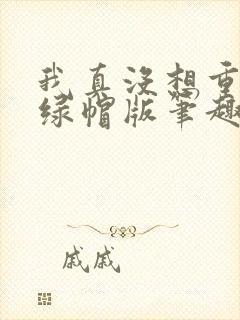 我真没想重
绿帽版笔趣
戚戚